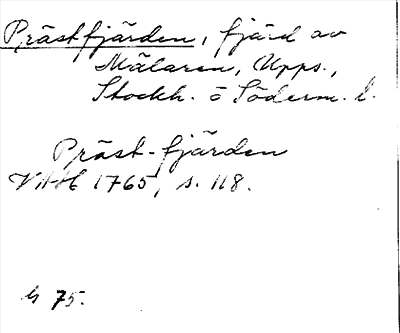 Prästfjärden, fjärd av
Mälaren, Upps.,
Stockh. o Söderm. l.
Präst-fjärden
1765, s. 118.
75.